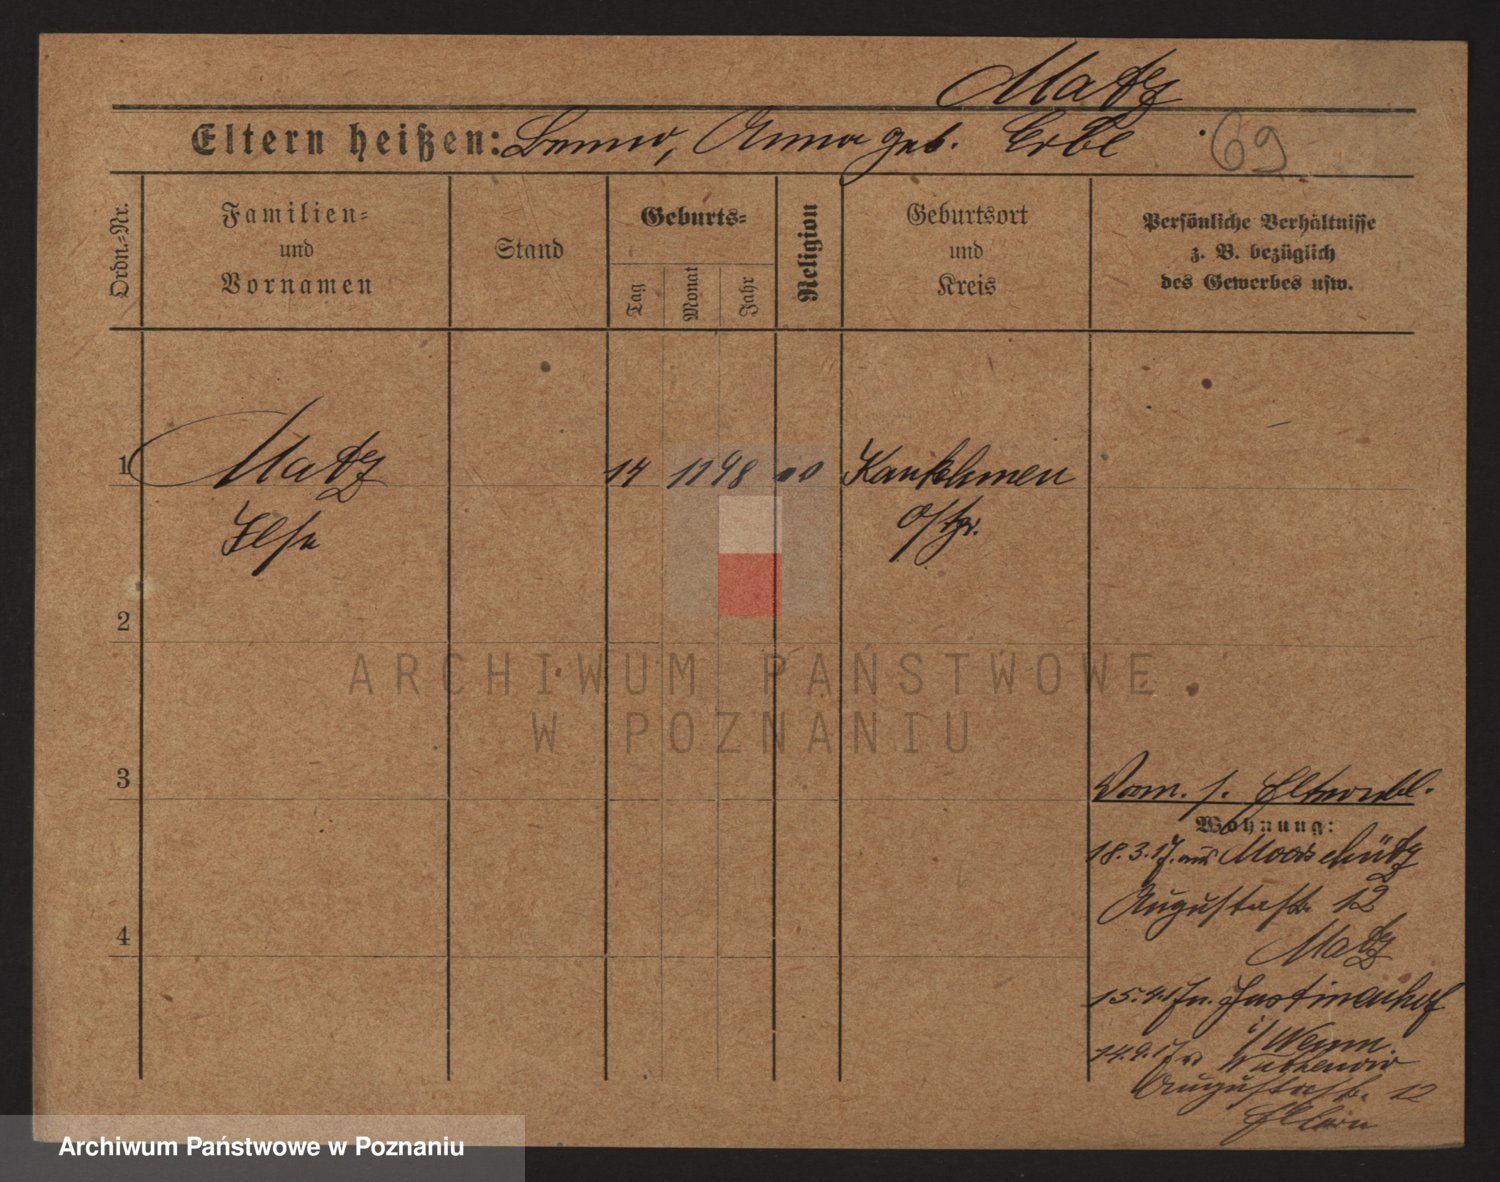 Matz
Eltern heißen: Benno, Anna geb. Erbe 69
Ordn.-Nr.
Familien- und Vornamen
Stand
Geburts-
Tag
Monat
Jahr
Religion
Geburtsort und Kreis
Persönliche Verhältnisse z. B. bezüglich des Gewerbes usw.
1 Matz 14 11 98 Kaukehmen
Ilse Ostpr.
2
3
Vom. s. Elternbl.
Wohnung:
18. 3. 17. aus Moorschütz
Augustastr. 12
Matz
4
15. 4. 17 n.
14. 9. 17 v.
Augustastr. 12
Eltern
ARCHIWUM PAŃSTWOWE
W POZNANIU
Archiwum Państwowe w Poznaniu